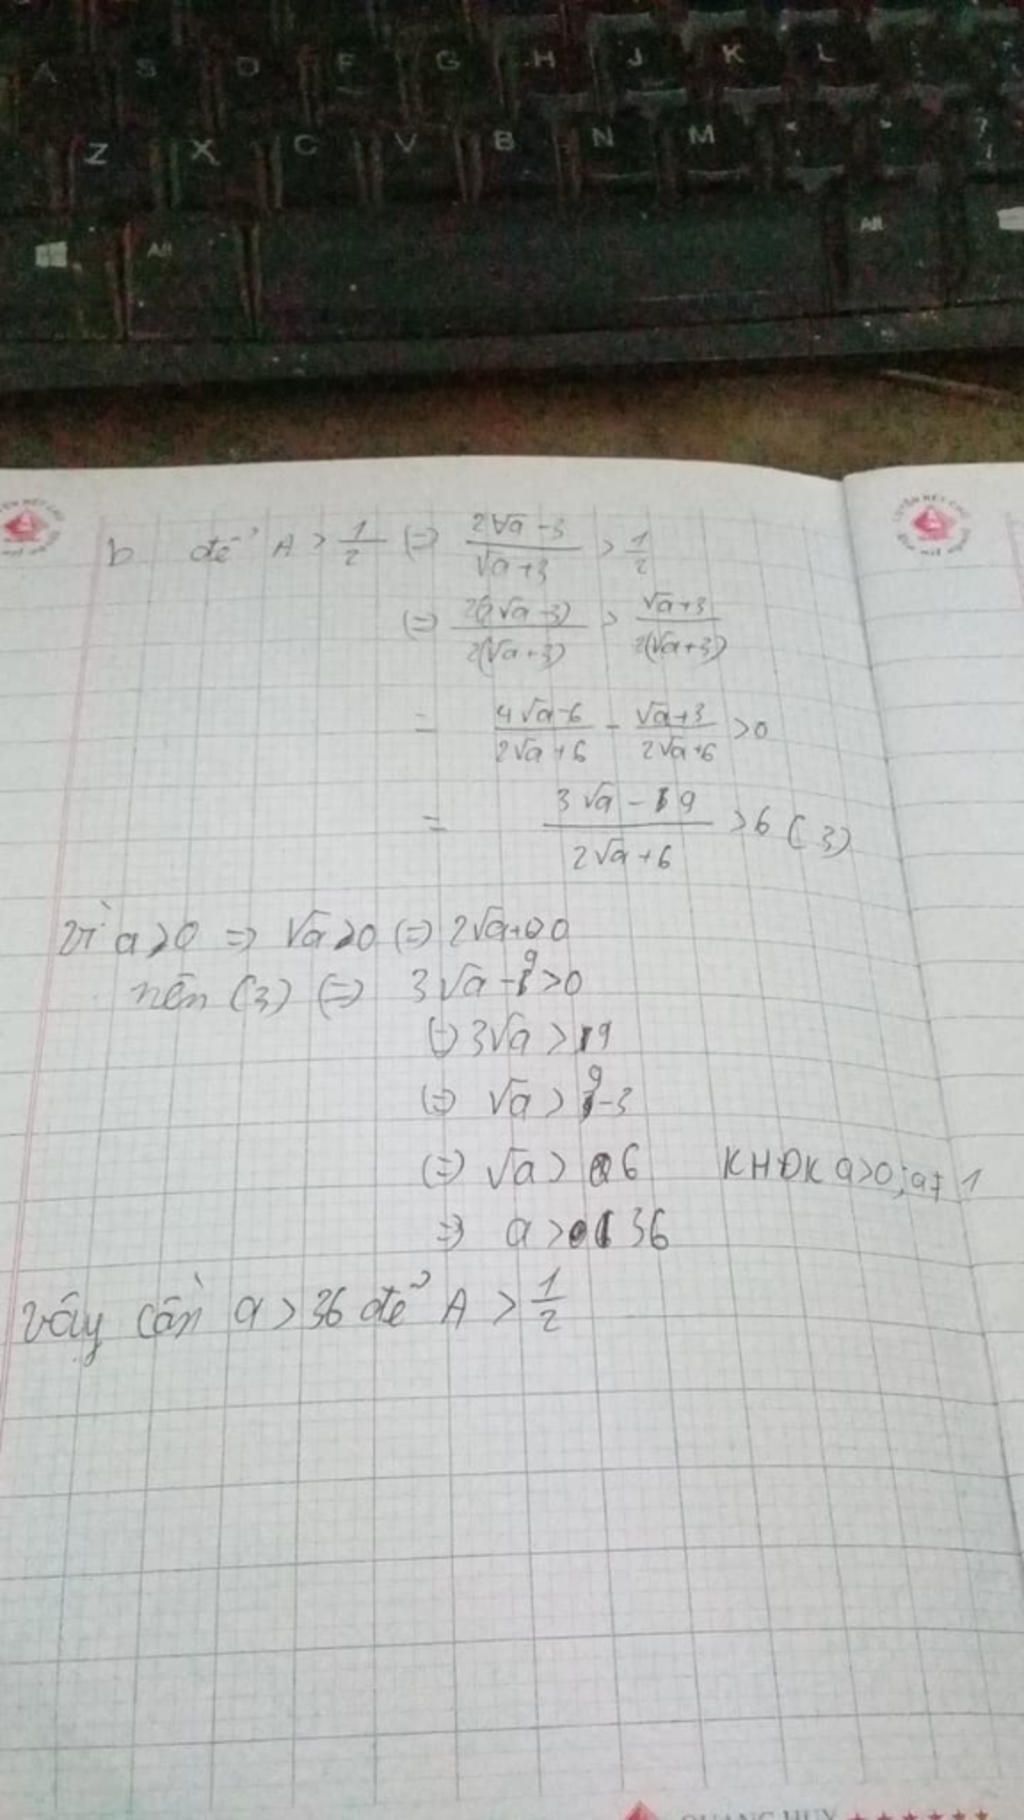 A S D F G H J K L
Z X C V B N M ?
Alt Alt
b để A > 1/2 (=) (2√a - 3)/(√a + 3) > 1/2
(=) 2(2√a - 3)/2(√a + 3) > (√a + 3)/2(√a + 3)
= (4√a - 6)/(2√a + 6) - (√a + 3)/(2√a + 6) > 0
= (3√a - 9)/(2√a + 6) > 6 (3)
Vì a > 0 => √a > 0 (=) 2√a+6>0
nên (3) (=) 3√a - 9 > 0
(=) 3√a > 9
(=) √a > 9-3
(=) √a > 6 KHĐK a>0; a≠1
=> a > 36
Vây cần a > 36 để A > 1/2
QUANG HUY ★★★★★★